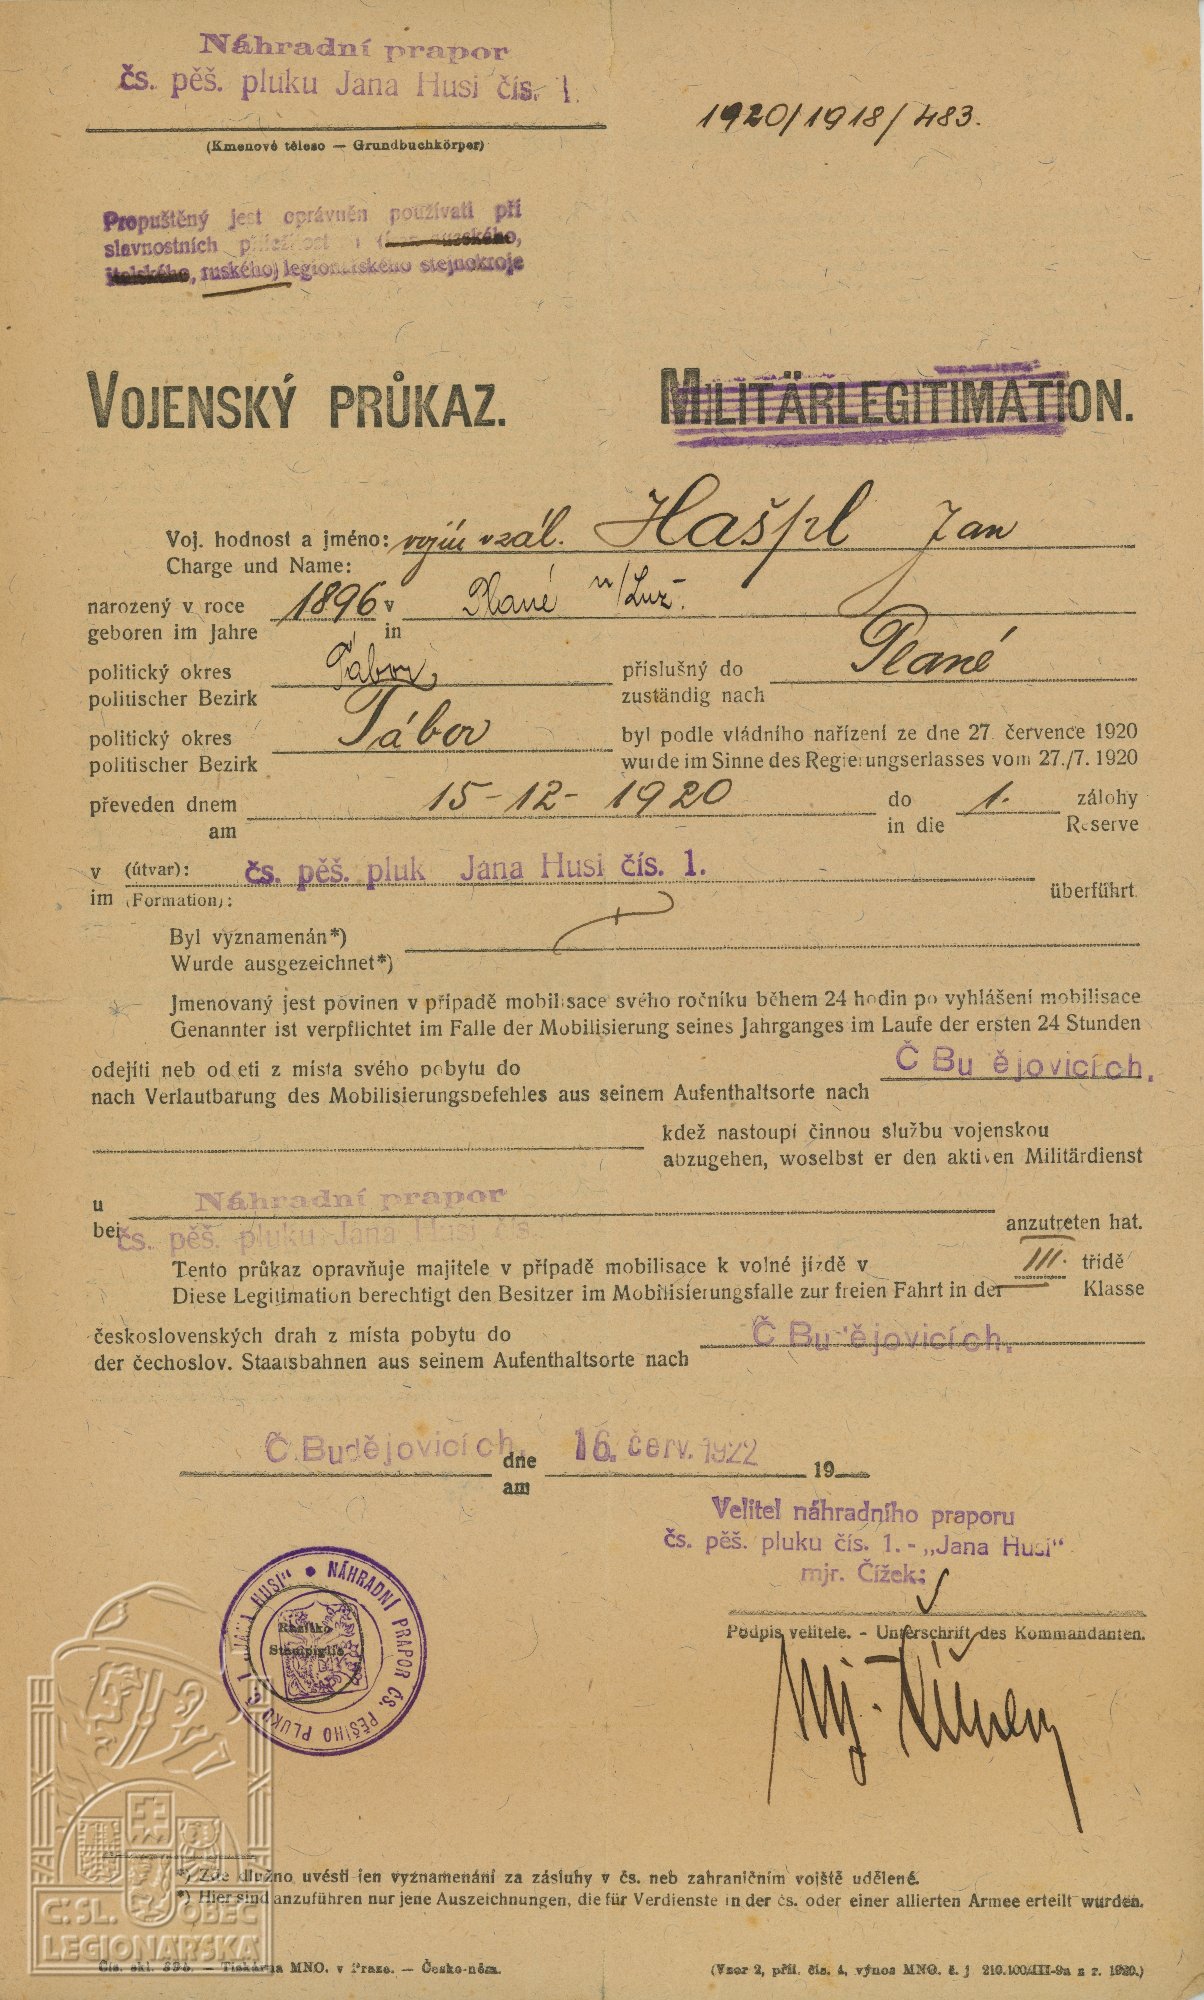 Náhradní prapor
čs. pěš. pluku Jana Husi čís. 1.
(Kmenové těleso — Grundbuchkörper)
1920/1918/483.
Propuštěný jest oprávněn používati při
slavnostních příležitost
ruského) legionářského stejnokroje
VOJENSKÝ PRŮKAZ.
MILITÄRLEGITIMATION.
Voj. hodnost a jméno: vojín v zál. Hašpl Jan
Charge und Name:
narozený v roce 1896 v Plané n/Luž.
geboren im Jahre in
politický okres Tábor příslušný do Plané
politischer Bezirk zuständig nach
politický okres Tábor byl podle vládního nařízení ze dne 27. července 1920
politischer Bezirk wurde im Sinne des Regierungserlasses vom 27./7. 1920
převeden dnem 15-12-1920 do 1. zálohy
am in die Reserve
v (útvar): čs. pěš. pluk Jana Husi čís. 1.
im (Formation): überführt.
Byl vyznamenán*)
Wurde ausgezeichnet*)
Jmenovaný jest povinen v případě mobilisace svého ročníku během 24 hodin po vyhlášení mobilisace
Genannter ist verpflichtet im Falle der Mobilisierung seines Jahrganges im Laufe der ersten 24 Stunden
odejíti neb odjeti z místa svého pobytu do Č Bu ějovicích.
nach Verlautbarung des Mobilisierungsbefehles aus seinem Aufenthaltsorte nach
kdež nastoupí činnou službu vojenskou
abzugehen, woselbst er den aktiven Militärdienst
u Náhradní prapor
bei čs. pěš. pluku Jana Husi čís. anzutreten hat.
Tento průkaz opravňuje majitele v případě mobilisace k volné jízdě v III. třídě
Diese Legitimation berechtigt den Besitzer im Mobilisierungsfalle zur freien Fahrt in der Klasse
československých drah z místa pobytu do Č Bu ějovicích.
der čechoslov. Staatsbahnen aus seinem Aufenthaltsorte nach
Č. Budějovicích, dne 16. červ. 1922 19
am
Velitel náhradního praporu
čs. pěš. pluku čís. 1. - „Jana Husi“
mjr. Čížek:
Podpis velitele. - Unterschrift des Kommandanten.
mjr. Čížek
NÁHRADNÍ PRAPOR ČS. PĚŠÍHO PLUKU Č. 1 „JANA HUSI“
Razítko
Stampiglie
*) Zde dlužno uvésti jen vyznamenání za zásluhy v čs. neb zahraničním vojště udělené.
*) Hier sind anzuführen nur jene Auszeichnungen, die für Verdienste in der čs. oder einer allierten Armee erteilt wurden.
Č.SL. OBEC
LEGIONÁŘSKÁ
Čís. skl. 898. — Tiskárna MNO. v Praze. — Česko-něm.
(Vzor 2, příl. čís. 4, výnos MNO. č. j. 210.100/III-9a z r. 1920.)